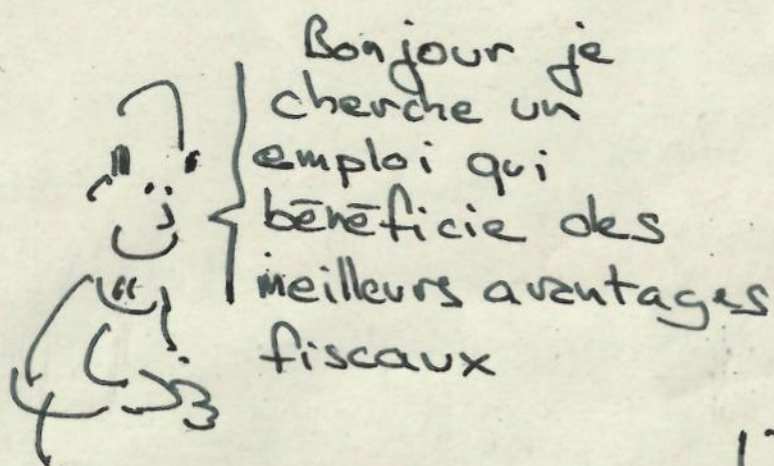 Bonjour je
cherche un
emploi qui
bénéficie des
meilleurs avantages
fiscaux